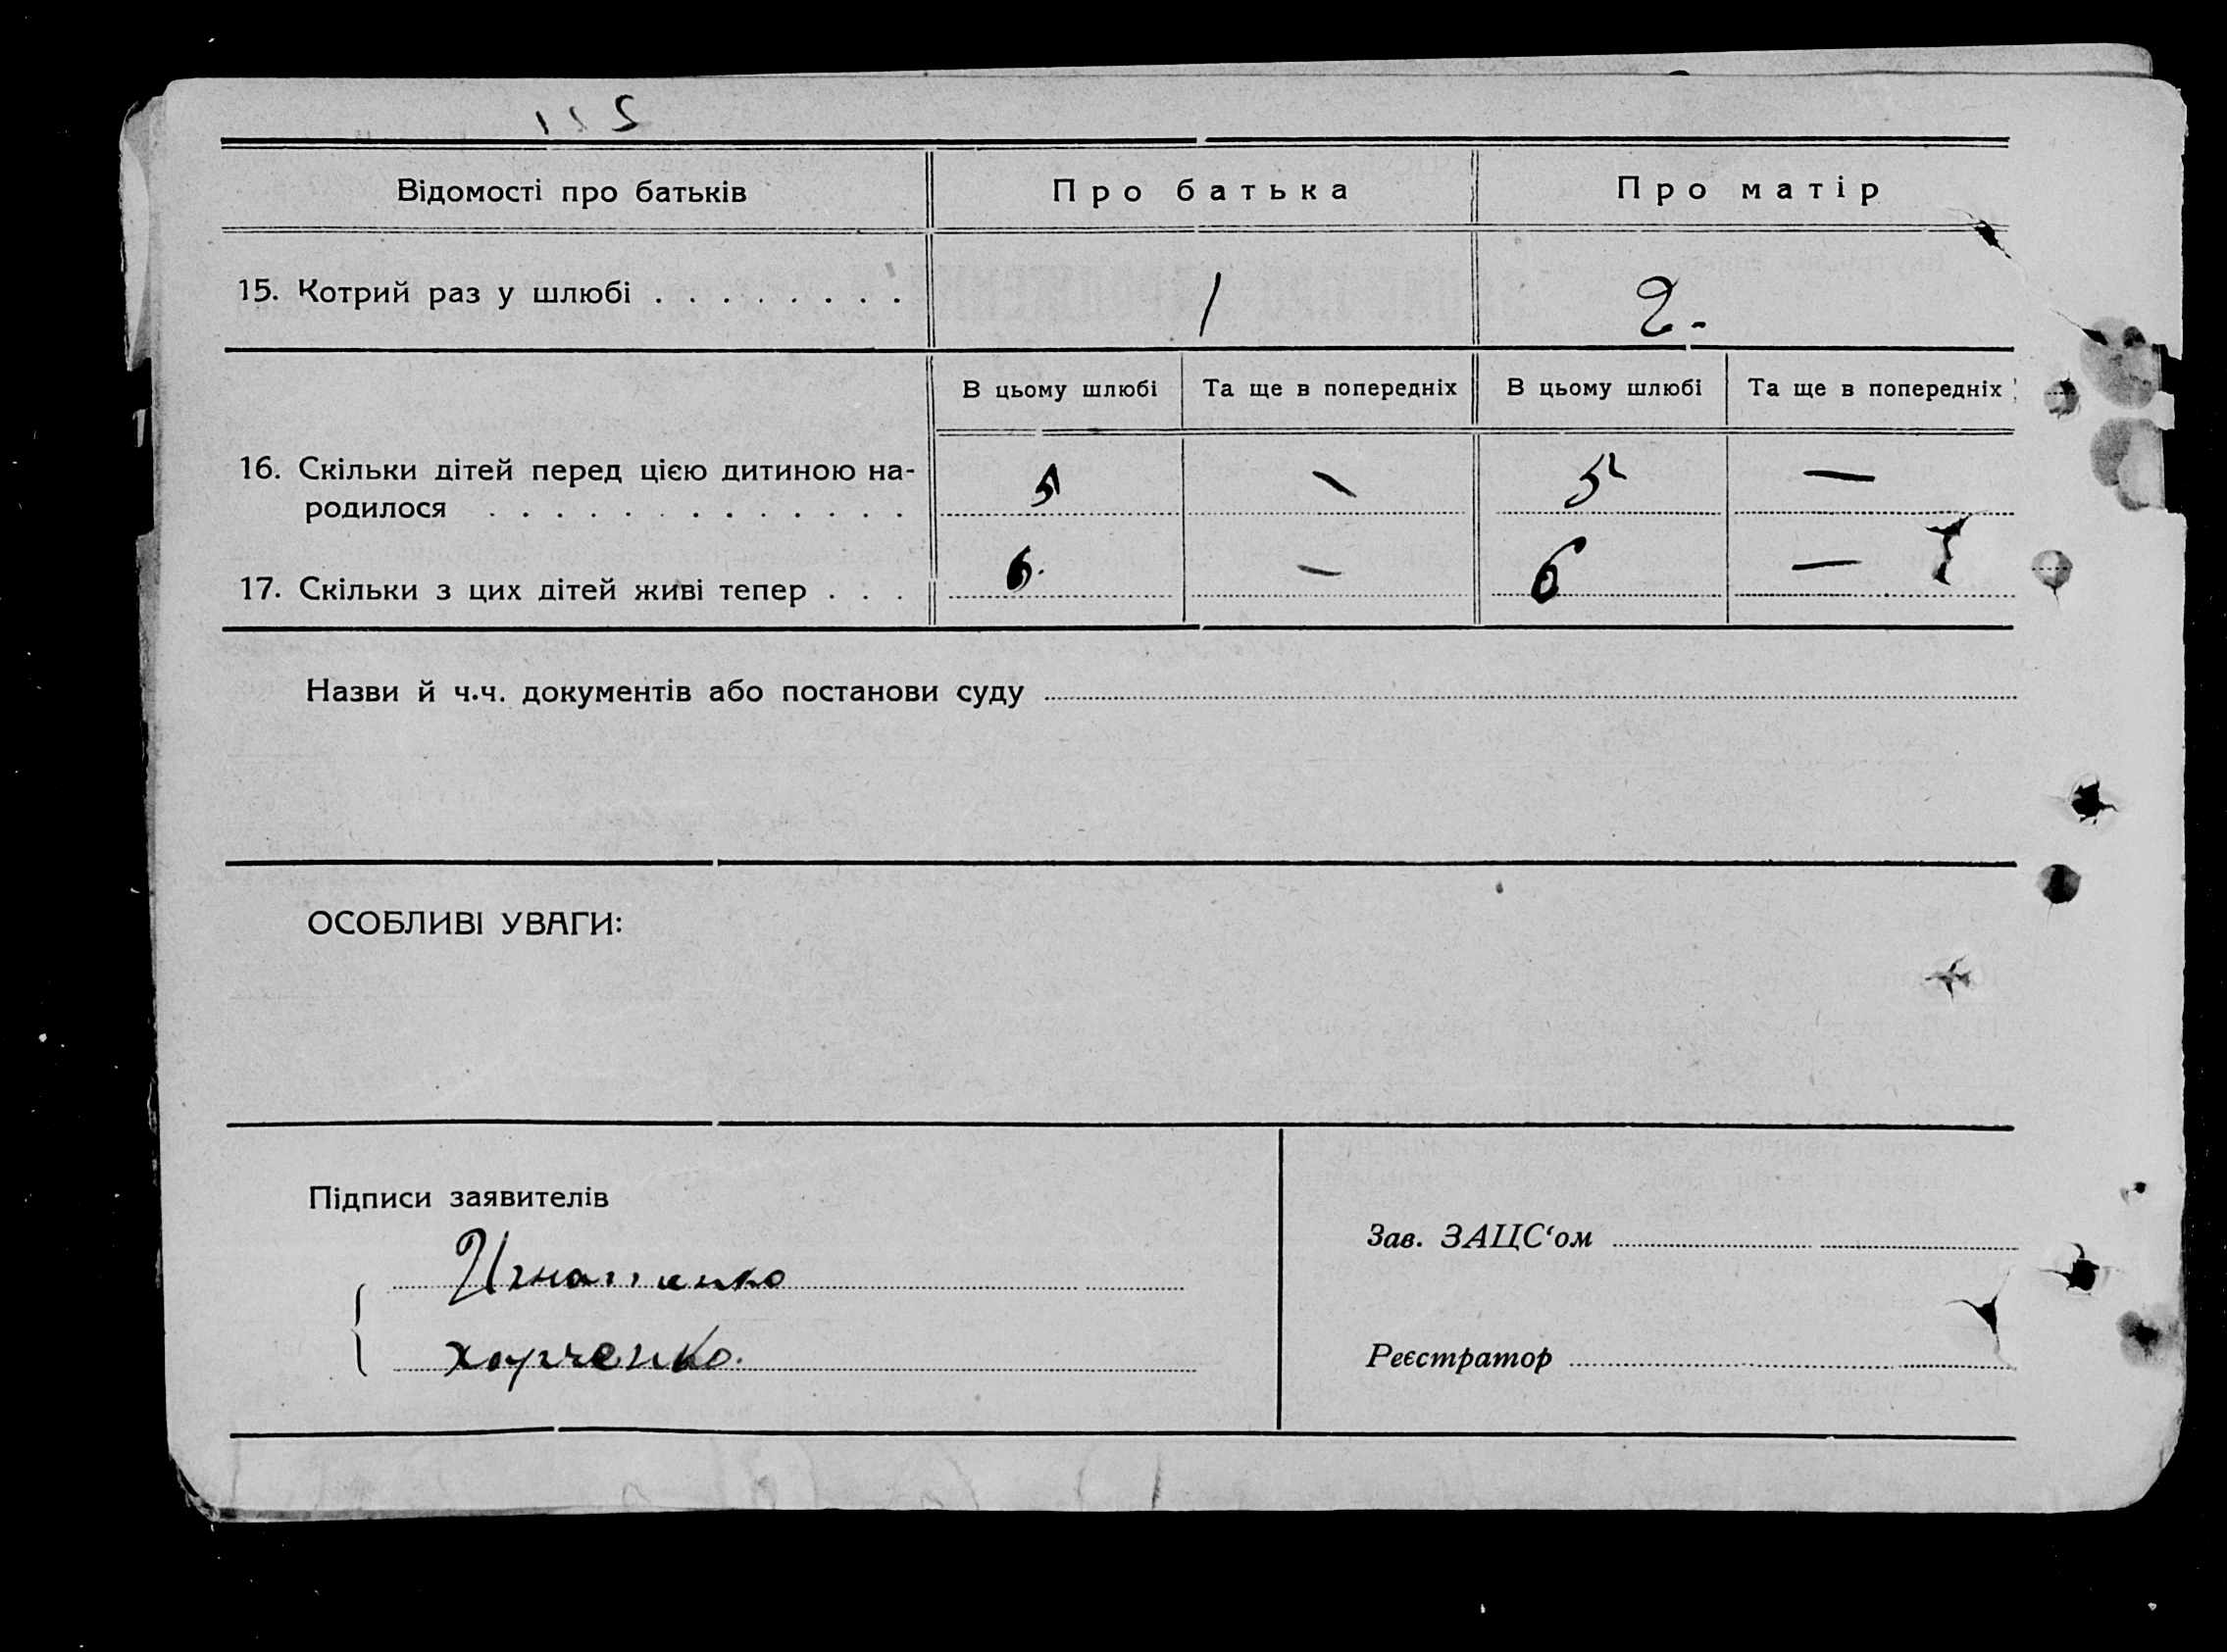 Відомості про батьків Про батька Про матір
15. Котрий раз у шлюбі . . . . . . . . 1 2.
В цьому шлюбі Та ще в попередніх В цьому шлюбі Та ще в попередніх
16. Скільки дітей перед цією дитиною на- 5 — 5 —
родилося . . . . . . . . . . . . .
17. Скільки з цих дітей живі тепер . . . 6. — 6 —
Назви й ч.ч. документів або постанови суду
ОСОБЛИВІ УВАГИ:
Підписи заявителів
Зав. ЗАЦС‘ом
Игнатенко
Реєстратор
харченко.